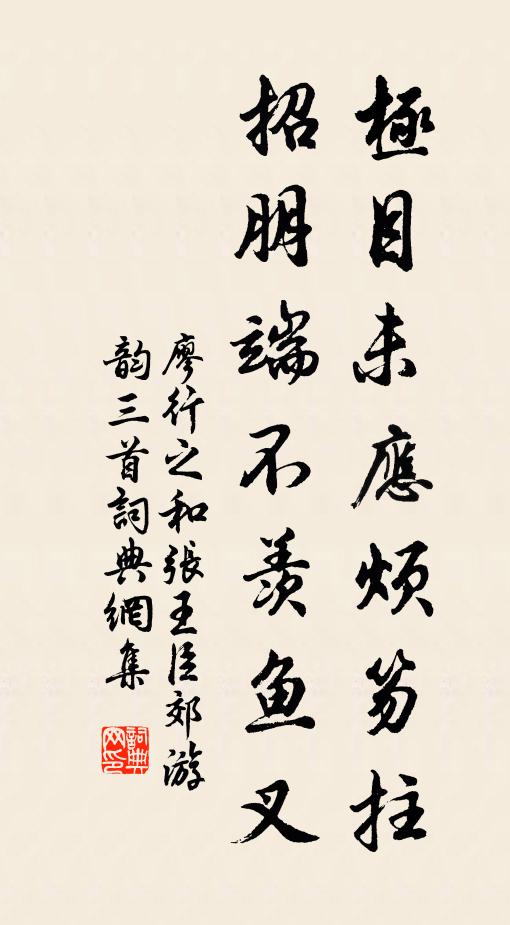 極目未應煩笏拄
招朋端不羨鱼叉
廖行之和張王臣郊游
韵三首詞典網集
詞典网印